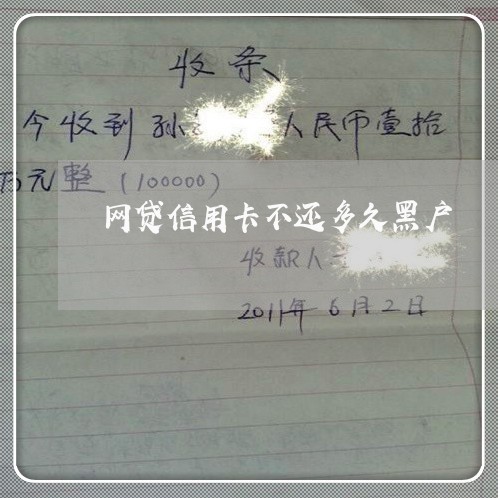 收条
今收到孙 人民币壹拾
万元整（100000）
网贷信用卡不还多久黑户
收款人
2011年6月2日